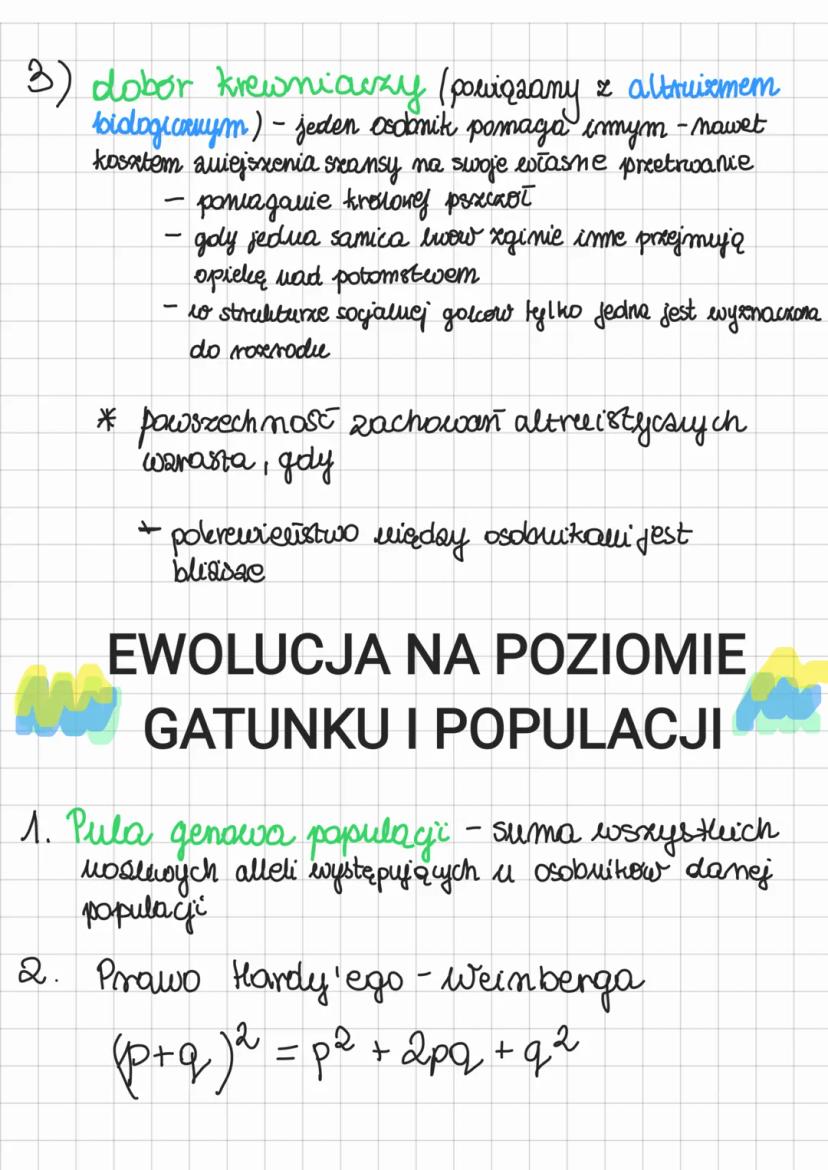 3) dobór krewniaczy (powiązany z altruizmem
biologicznym) - jeden osobnik pomaga innym - nawet
kosztem zmiejszenia szansy na swoje własne przetrwanie
- pomaganie królowej pszczół
- gdy jedna samica lwów zginie inne przejmują
opiekę nad potomstwem
- w strukturze socjalnej golców tylko jedna jest wyznaczona
do rozrodu
* powszechność zachowań altruistycznych
wzrasta, gdy
* pokrewieństwo między osobnikami jest
bliższe
EWOLUCJA NA POZIOMIE
GATUNKU I POPULACJI
1. Pula genowa populacji - suma wszystkich
możliwych alleli występujących u osobników danej
populacji
2. Prawo Hardy'ego - Weinberga
(p+q)² = p² + 2pq + q²